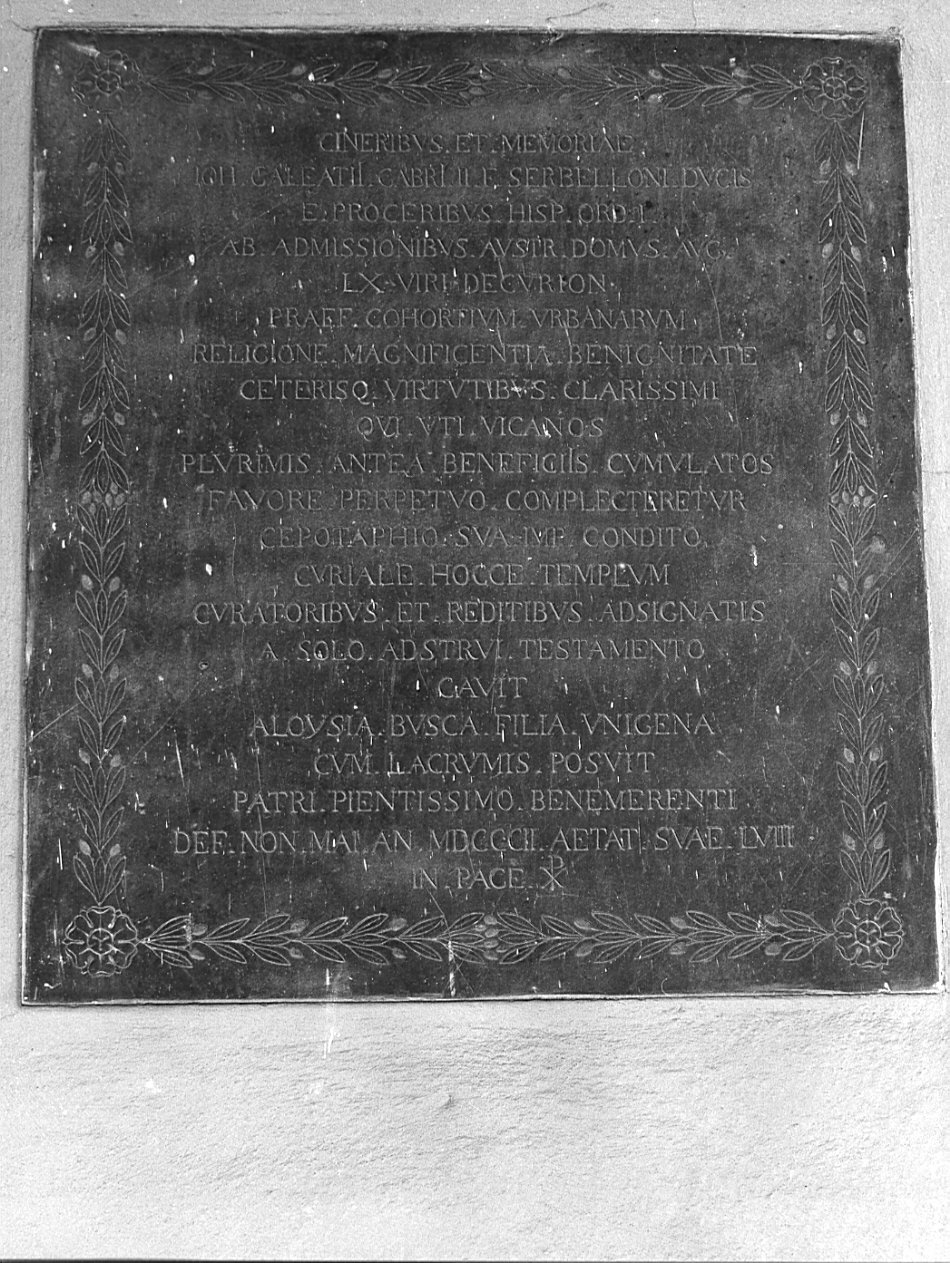 CINERIBVS . ET . MEMORIAE
IOH . GALEATII . GABRI . II . F . SERBELLONI . DVCIS
E . PROCERIBVS . HISP . ORD . I .
AB . ADMISSIONIBVS . AVSTR . DOMVS . AVG .
LX . VIRI . DECVRION .
PRAEF . COHORTIVM . VRBANARVM
RELIGIONE . MAGNIFICENTIA . BENIGNITATE
CETERISQ . VIRTVTIBVS . CLARISSIMI
QVI . VTI . VICANOS
PLVRIMIS . ANTEA . BENEFICIIS . CVMVLATOS
FAVORE . PERPETVO . COMPLECTERETVR
CEPOTAPHIO . SVA . IMP . CONDITO
CVRIALE . HOCCE . TEMPLVM
CVRATORIBVS . ET . REDITIBVS . ADSIGNATIS
A . SOLO . ADSTRVI . TESTAMENTO
CAVIT
ALOYSIA . BVSCA . FILIA . VNIGENA
CVM . LACRVMIS . POSVIT
PATRI . PIENTISSIMO . BENEMERENTI
DEF . NON . MAI . AN . MDCCCII . AETAT . SVAE . LVIII .
IN . PACE . ☧